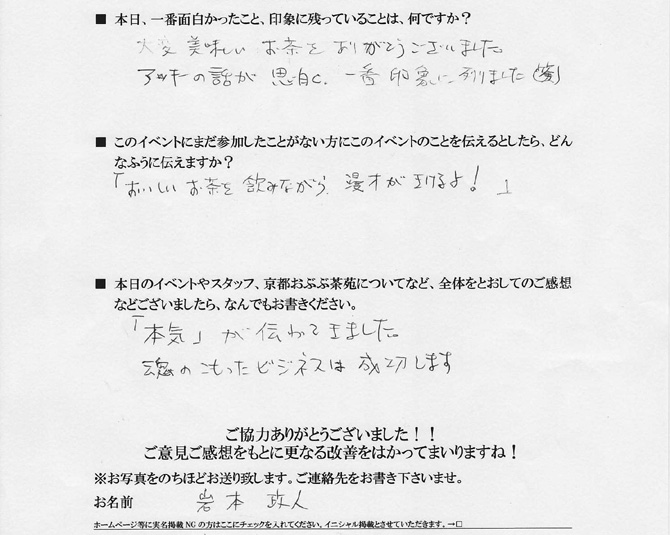 ■ 本日、一番面白かったこと、印象に残っていることは、何ですか？
大変美味しい お茶を ありがとうございました。
アッキーの話が 面白く、一番印象に残りました（笑）
■ このイベントにまだ参加したことがない方にこのイベントのことを伝えるとしたら、どん
なふうに伝えますか？
「おいしい お茶を 飲みながら、漫才が きけるよ！」
■ 本日のイベントやスタッフ、京都おぶぶ茶苑についてなど、全体をとおしてのご感想
などございましたら、なんでもお書きください。
「本気」が 伝わてきました。
魂のこもったビジネスは 成功します
ご協力ありがとうございました！！
ご意見ご感想をもとに更なる改善をはかってまいりますね！
※お写真をのちほどお送り致します。ご連絡先をお書き下さいませ。
お名前 岩本 政人
ホームページ等に実名掲載 NG の方はここにチェックを入れてください。イニシャル掲載とさせていただきます。→□